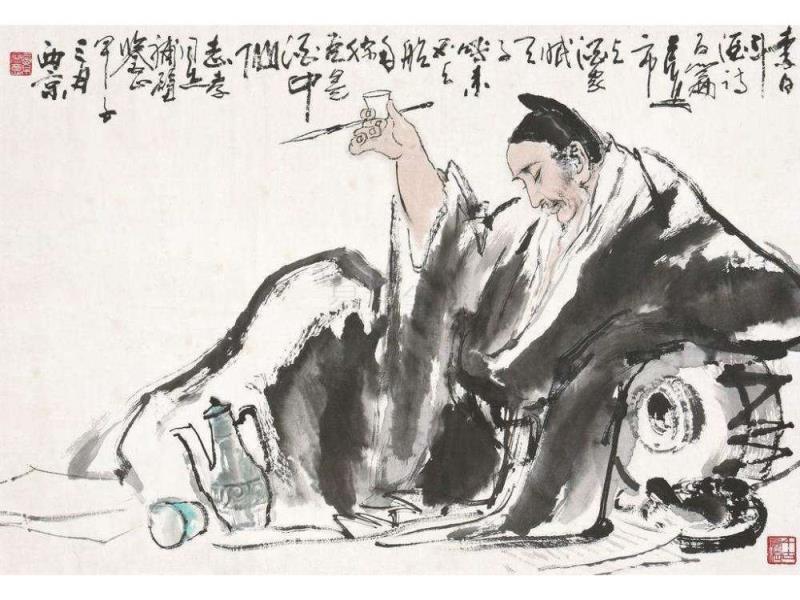 李白
斗
酒诗
百篇
长安
市
上
酒家
眠
天
子
呼来
不上
船
自
称
臣是
酒中
仙
同志
补壁
甲子
三月
西京